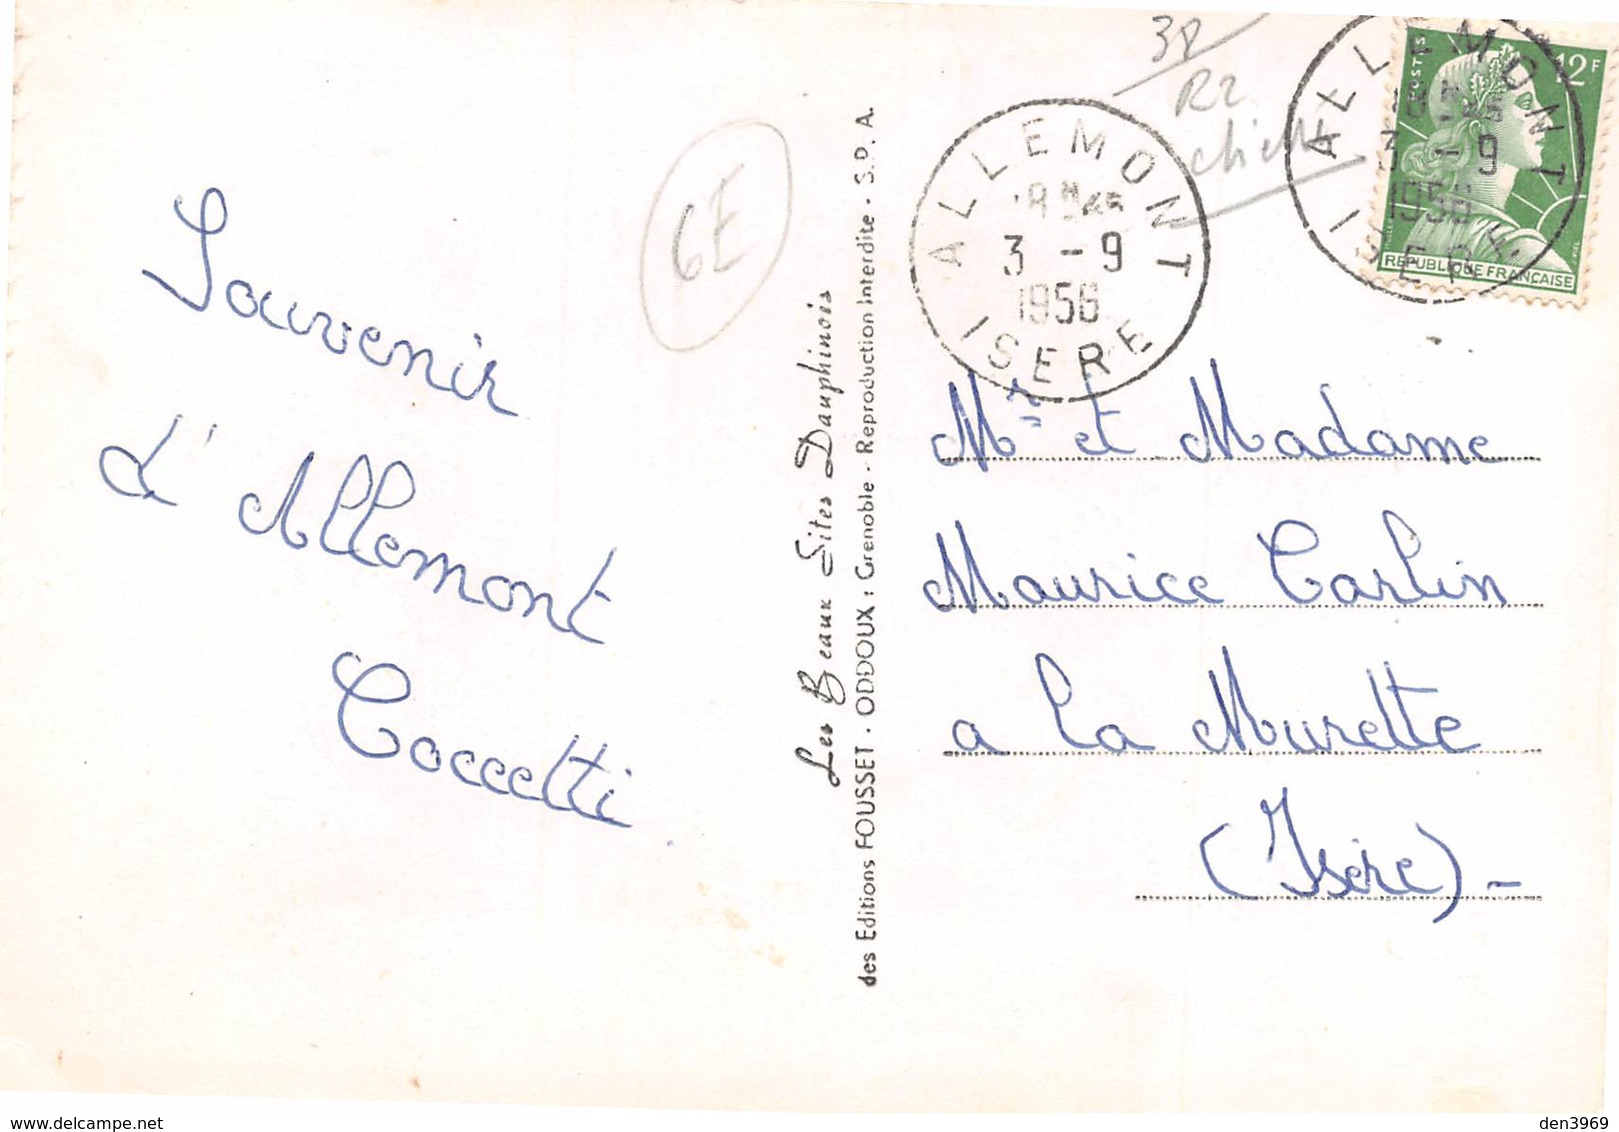 Souvenir
d'Allemont
Coccetti
6E
Les Beaux Sites Dauphinois
des Editions FOUSSET - ODDOUX : Grenoble - Reproduction Interdite - S.P.A.
38
R2
ALLEMONT
3 - 9
1956
ISERE
ALLEMONT
3 - 9
1956
ISERE
POSTES
12F
REPUBLIQUE FRANÇAISE
Mr et Madame
Maurice Carlin
a La Murette
(Isère) -
delcampe.net
den3969